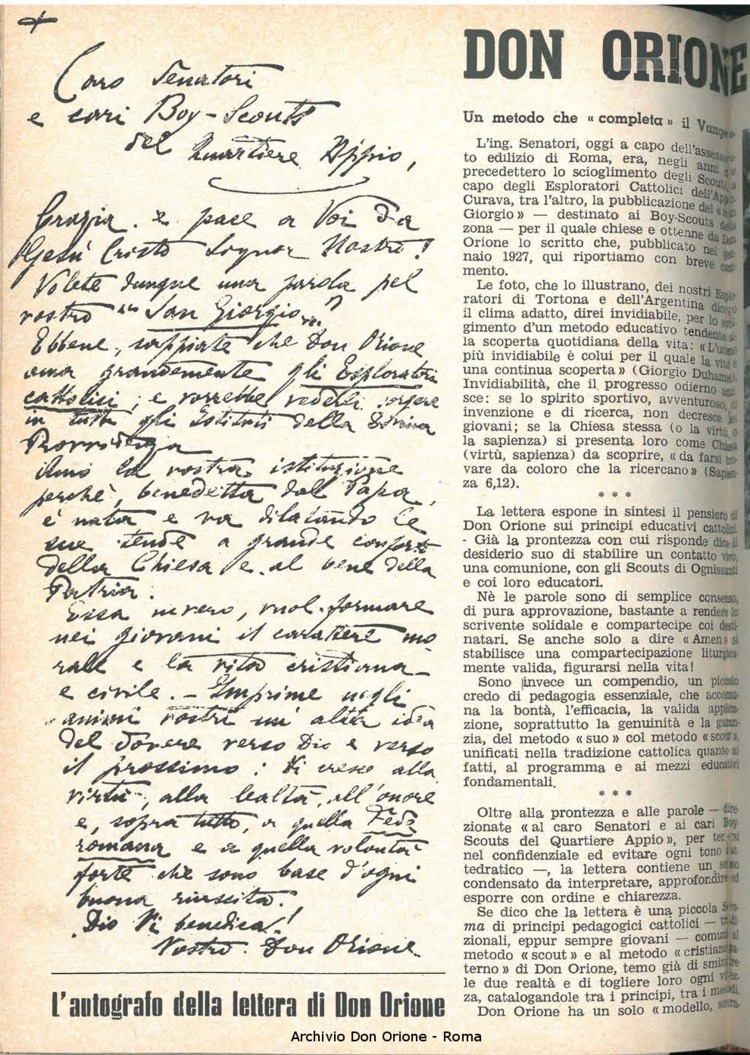 Caro Senatori
e cari Boy-Scouts
del Quartiere Appio,
Grazia e pace a Voi da
Gesù Cristo Signor Nostro!
Volete dunque una parola pel
vostro "San Giorgio„?
Ebbene, sappiate che Don Orione
ama grandemente gli Esploratori
cattolici, e vorrebbe vederli sorgere
in tutti gli Istituti della Divina
Provvidenza
Amo la vostra istituzione
perchè, benedetta dal Papa,
è nata e va dilatando le
sue tende a grande conforto
della Chiesa e al bene della
Patria.
Essa invero, vuol formare
nei giovani il carattere mo
rale e la vita cristiana
e civile. - Imprime negli
animi vostri un' alta idea
del dovere verso Dio e verso
il prossimo: Vi cresce alla
virtù, alla lealtà, all'onore
e, sopra tutto, a quella Fede
romana e a quella volontà
forte che sono base d'ogni
buona riuscita.
Dio Vi benedica!
Vostro Don Orione
L'autografo della lettera di Don Orione
DON ORIONE
Un metodo che « completa » il
L'ing. Senatori, oggi a capo
to edilizio di Roma, era, negli anni
precedettero lo scioglimento degli
capo degli Esploratori Cattolici
Curava, tra l'altro, la pubblicazione del
Giorgio » — destinato ai Boy-Scouts
zona — per il quale chiese e ottenne da
Orione lo scritto che, pubblicato nel
naio 1927, qui riportiamo con breve
mento.
Le foto, che lo illustrano, dei nostri
ratori di Tortona e dell'Argentina
il clima adatto, direi invidiabile, per lo
gimento d'un metodo educativo tendente
la scoperta quotidiana della vita: « L'uomo
più invidiabile è colui per il quale la vita è
una continua scoperta » (Giorgio Duhamel).
Invidiabilità, che il progresso odierno
sce: se lo spirito sportivo, avventuroso,
invenzione e di ricerca, non decresce
giovani; se la Chiesa stessa (o la virtù, o
la sapienza) si presenta loro come Chiesa
(virtù, sapienza) da scoprire, « da farsi tro-
vare da coloro che la ricercano » (Sapien-
za 6,12).
* * *
La lettera espone in sintesi il pensiero di
Don Orione sui principi educativi cattolici.
- Già la prontezza con cui risponde dice il
desiderio suo di stabilire un contatto vivo,
una comunione, con gli Scouts di Ognissanti
e coi loro educatori.
Nè le parole sono di semplice consenso,
di pura approvazione, bastante a rendere lo
scrivente solidale e compartecipe coi desti-
natari. Se anche solo a dire « Amen » si
stabilisce una compartecipazione liturgica-
mente valida, figurarsi nella vita!
Sono invece un compendio, un piccolo
credo di pedagogia essenziale, che accomu-
na la bontà, l'efficacia, la valida applica-
zione, soprattutto la genuinità e la garan-
zia, del metodo « suo » col metodo « scout »,
unificati nella tradizione cattolica quanto ai
fatti, al programma e ai mezzi educativi
fondamentali.
* * *
Oltre alla prontezza e alle parole — dire-
zionate « al caro Senatori e ai cari Boy-
Scouts del Quartiere Appio », per
nel confidenziale ed evitare ogni tono
tedratico —, la lettera contiene un senso
condensato da interpretare, approfondire ed
esporre con ordine e chiarezza.
Se dico che la lettera è una piccola
ma di principi pedagogici cattolici —
zionali, eppur sempre giovani — comuni al
metodo « scout » e al metodo « cristiano
terno » di Don Orione, temo già di
le due realtà e di togliere loro ogni
za, catalogandole tra i principi, tra i metodi.
Don Orione ha un solo « modello,
Archivio Don Orione - Roma